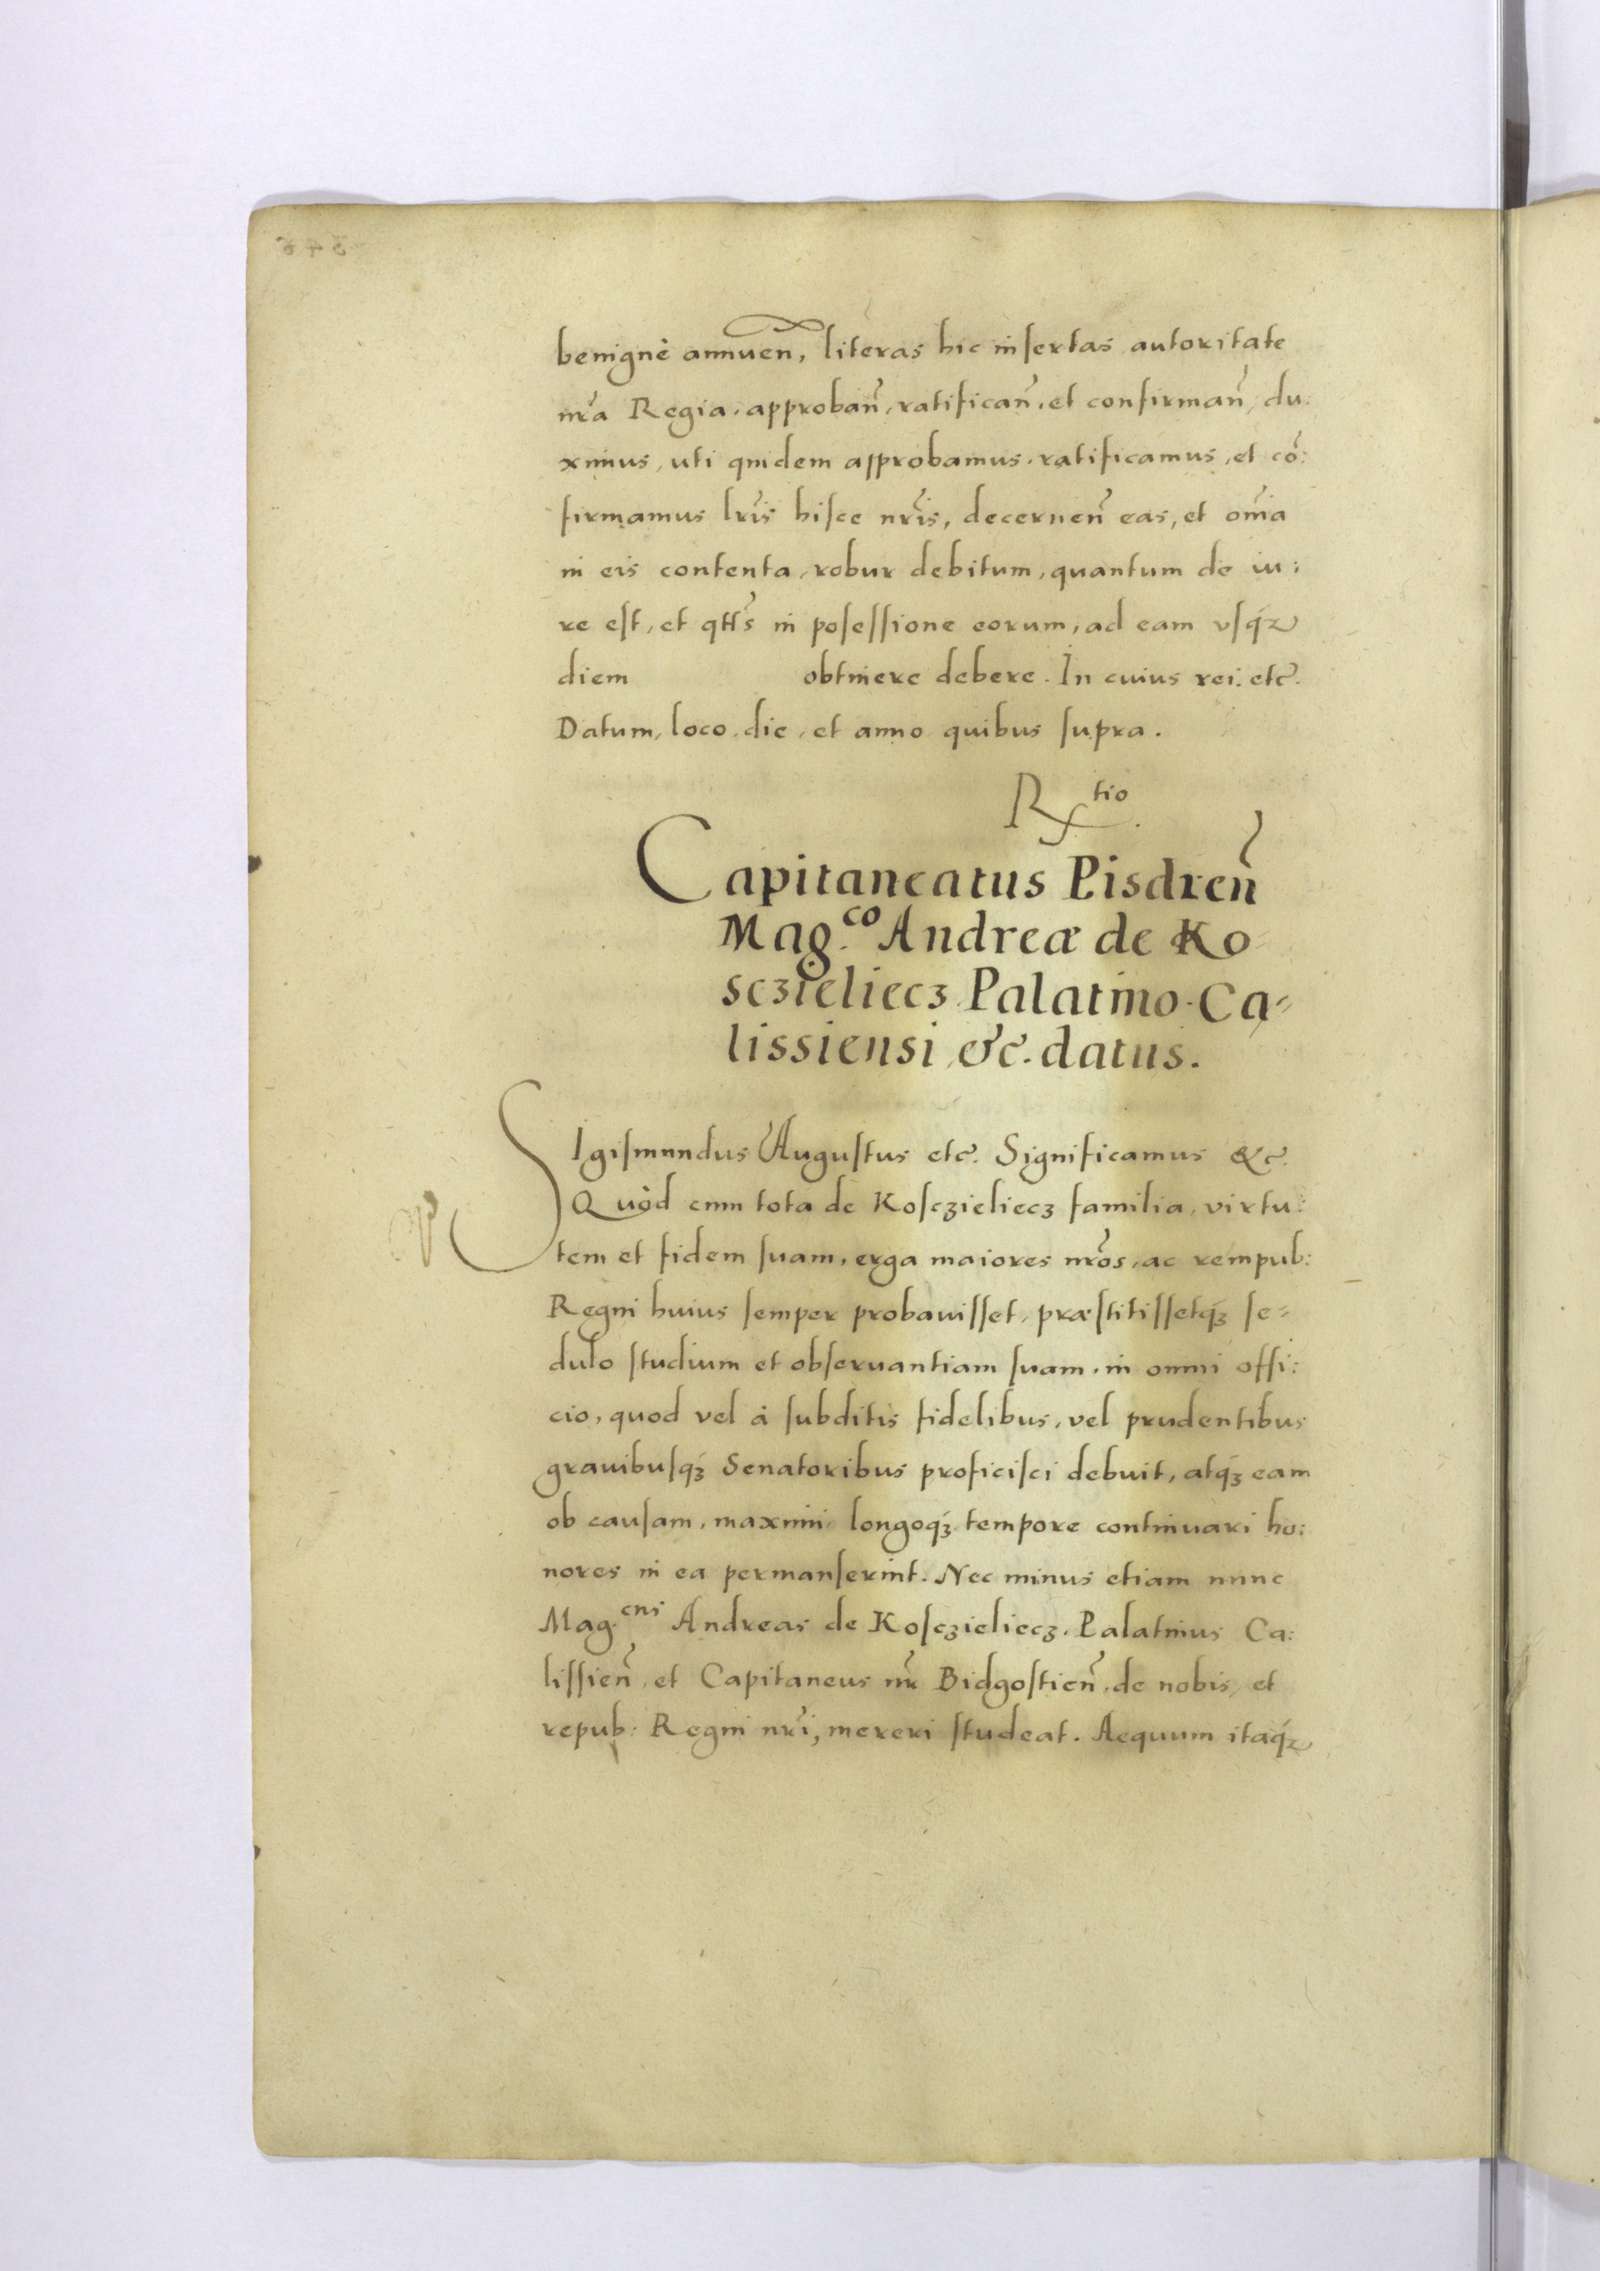 benignè annuen̄, literas hic insertas autoritate
nr̃a Regia, approban̄, ratifican̄, et confirman̄, du:
ximus, uti quidem approbamus, ratificamus, et cõ:
firmamus lr̃is hisce nr̃is, decernen̄ eas, et om̃ia
in eis contenta, robur debitum, quantum de iu:
re est, et qtt̃s in posessione eorum, ad eam vsq́ꝫ
diem obtinere debere. In cuius rei. etc.
Datum, loco, die, et anno quibus supra.
R tio.
Capitaneatus Pisdren̄
Mag.co Andreæ de Ko
sczieliecz Palatino Ca-
lissiensi, &c. datus.
SIgismundus Augustus etc. Significamus &c.
Quòd cum tota de Kosczieliecz familia, virtu:
tem et fidem suam, erga maiores nr̃os, ac rempub:
Regni huius semper probauisset, præstitissetq́ꝫ se-
dulo studium et obseruantiam suam, in omni offi:
cio, quod vel à subditis fidelibus, vel prudentibus
grauibusq́ꝫ Senatoribus proficisci debuit, atq́ꝫ eam
ob causam, maximi longoq́ꝫ tempore continuari ho:
nores in ea permanserint. Nec minus etiam nunc
Mag.cus Andreas de Kosczieliecz, Palatinus Ca:
lissien̄, et Capitaneus nr̃ Bidgostien̄, de nobis, et
repub: Regni nr̃i, mereri studeat. Aequum itaq́ꝫ